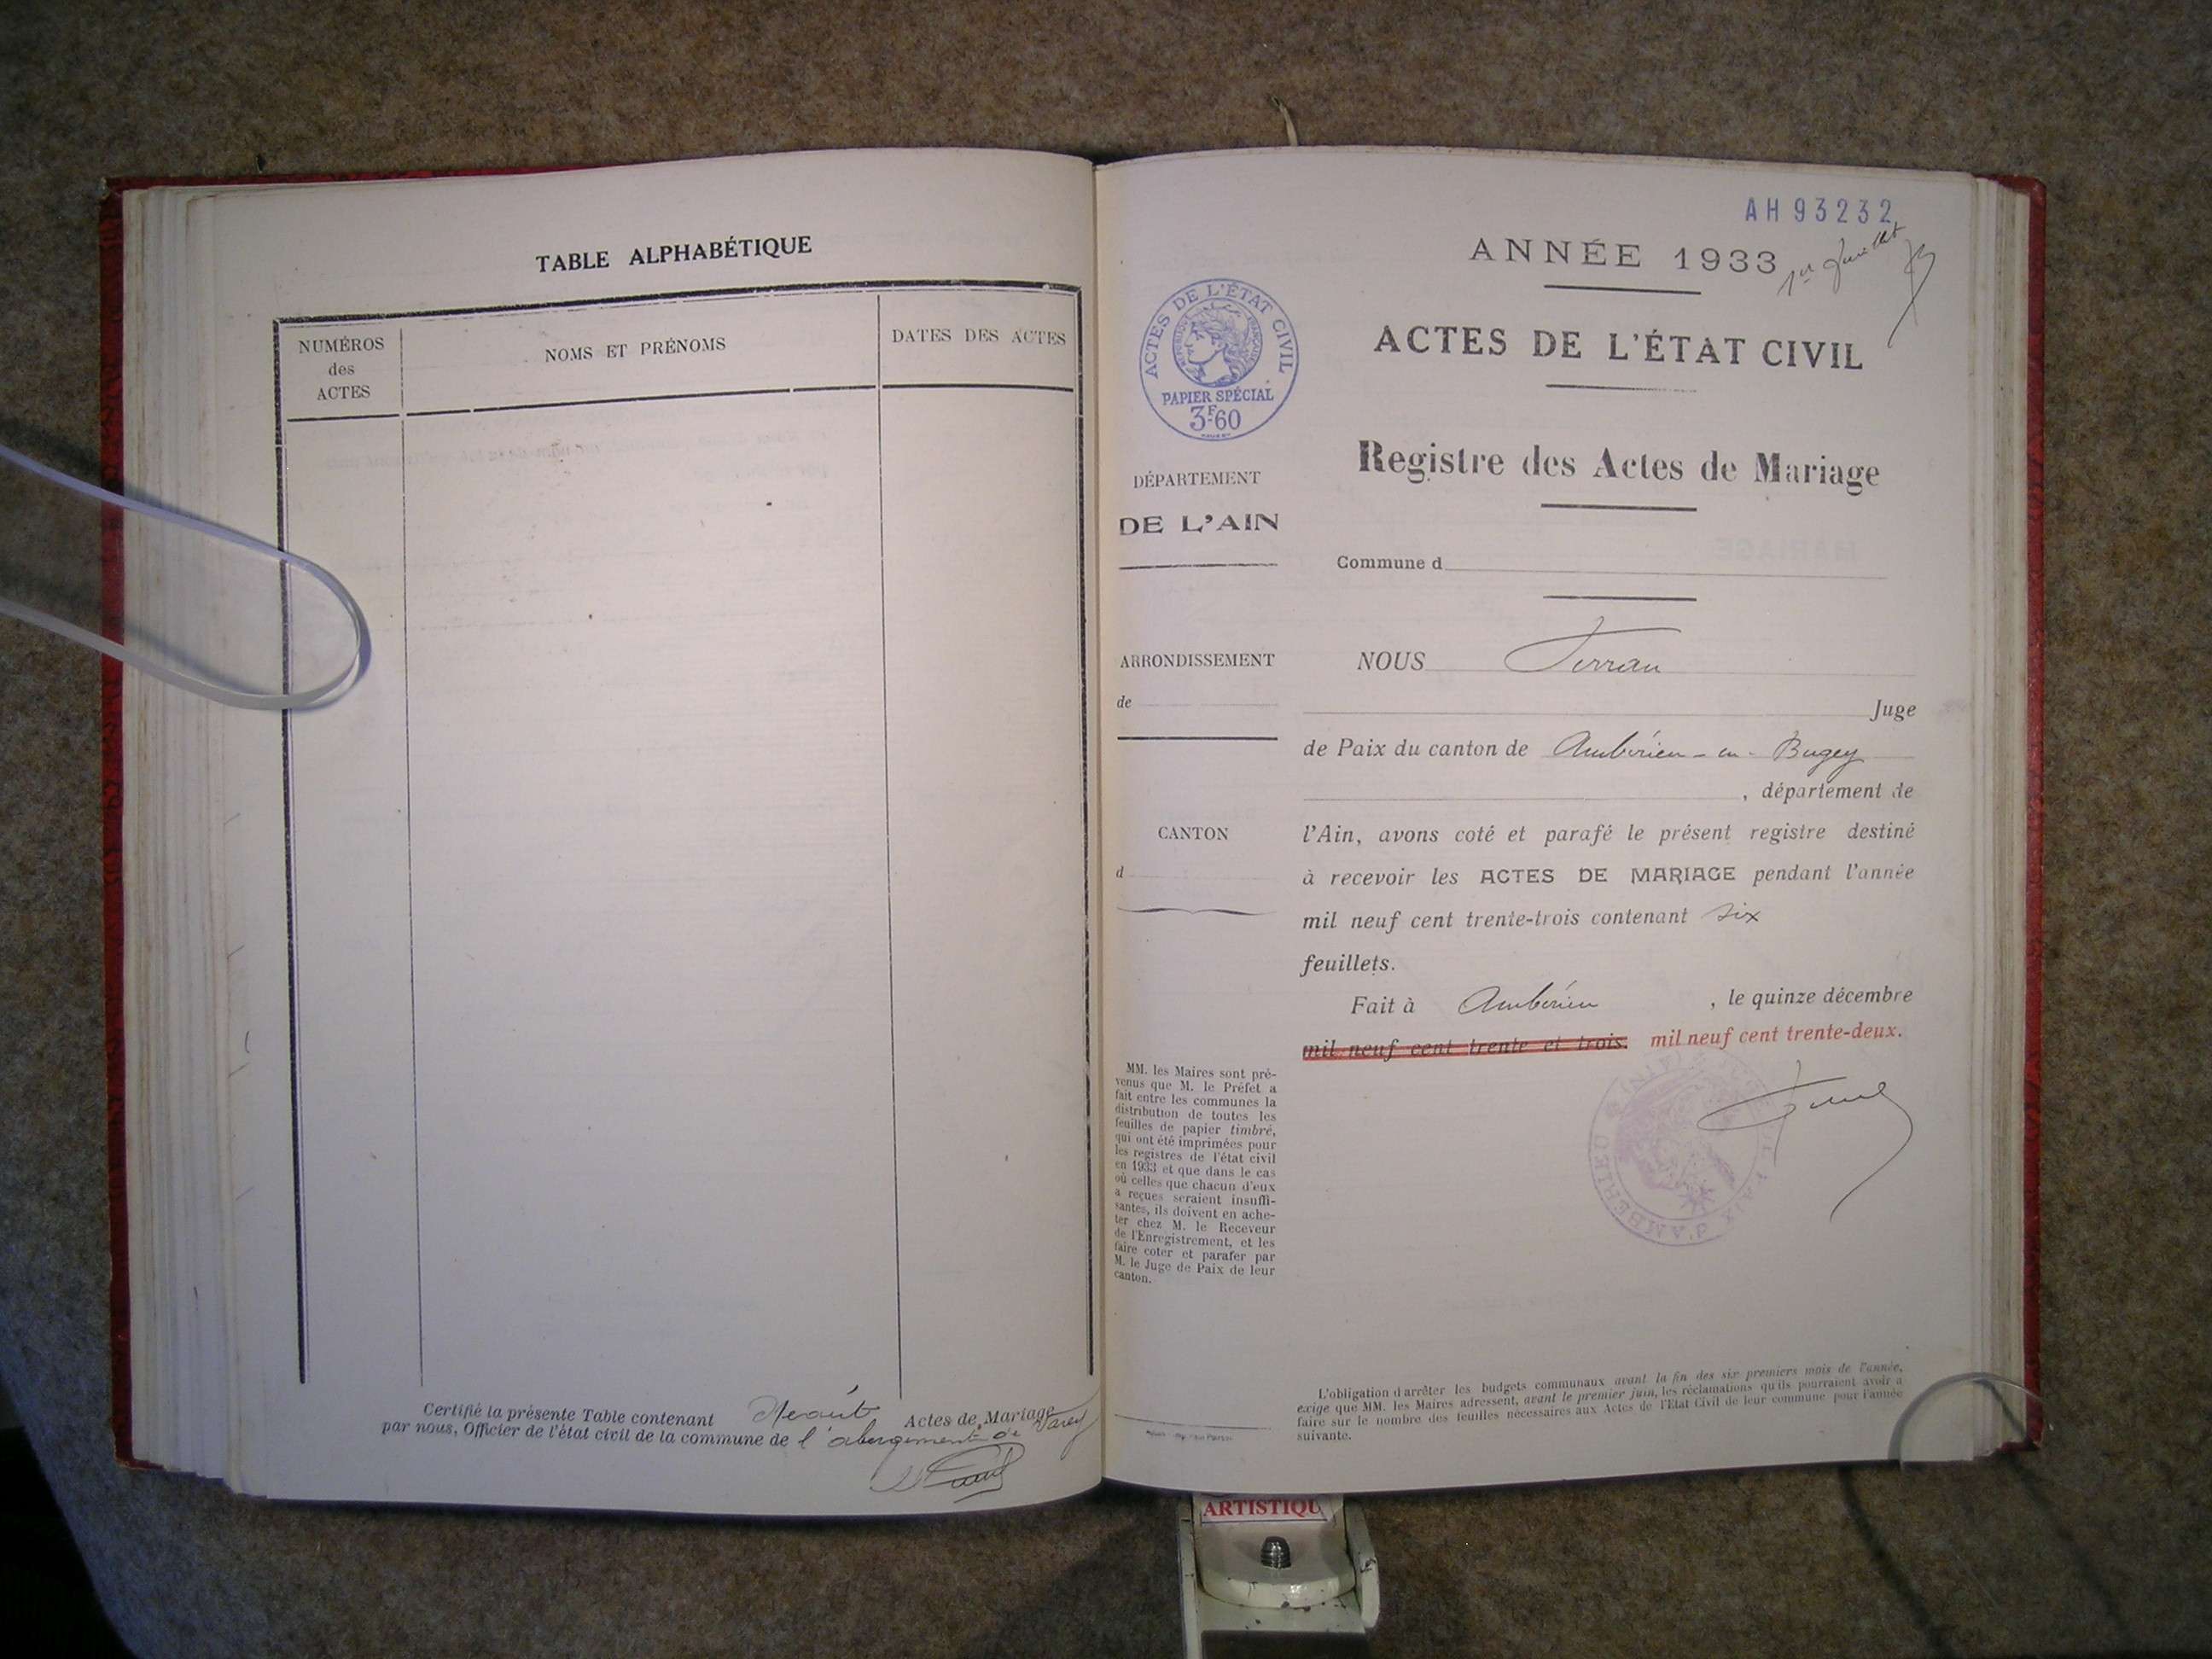 TABLE ALPHABÉTIQUE
NUMÉROS
des
ACTES
NOMS ET PRÉNOMS
DATES DES ACTES
Certifié la présente Table contenant Néant Actes de Mariage
par nous, Officier de l'état civil de la commune de l'abergement de Varey
AH 93232
1er feuillet
ANNÉE 1933
ACTES DE L'ÉTAT CIVIL
ACTES DE L'ÉTAT CIVIL
RÉPUBLIQUE FRANÇAISE
PAPIER SPÉCIAL
3F60
Registre des Actes de Mariage
DÉPARTEMENT
DE L'AIN
Commune d
ARRONDISSEMENT
de
CANTON
d
NOUS
Juge
de Paix du canton de Ambérieu-en-Bugey
, département de
l'Ain, avons coté et parafé le présent registre destiné
à recevoir les ACTES DE MARIAGE pendant l'année
mil neuf cent trente-trois contenant six
feuillets.
Fait à Ambérieu , le quinze décembre
mil neuf cent trente et trois. mil neuf cent trente-deux.
MM. les Maires sont pré-
venus que M. le Préfet a
fait entre les communes la
distribution de toutes les
feuilles de papier timbré,
qui ont été imprimées pour
les registres de l'état civil
en 1933 et que dans le cas
où celles que chacun d'eux
a reçues seraient insuffi-
santes, ils doivent en ache-
ter chez M. le Receveur
de l'Enregistrement, et les
faire coter et parafer par
M. le Juge de Paix de leur
canton.
L'obligation d'arrêter les budgets communaux avant la fin des six premiers mois de l'année,
exige que MM. les Maires adressent, avant le premier juin, les réclamations qu'ils pourraient avoir à
faire sur le nombre des feuilles nécessaires aux Actes de l'Etat Civil de leur commune pour l'année
suivante.
ARTISTIQU